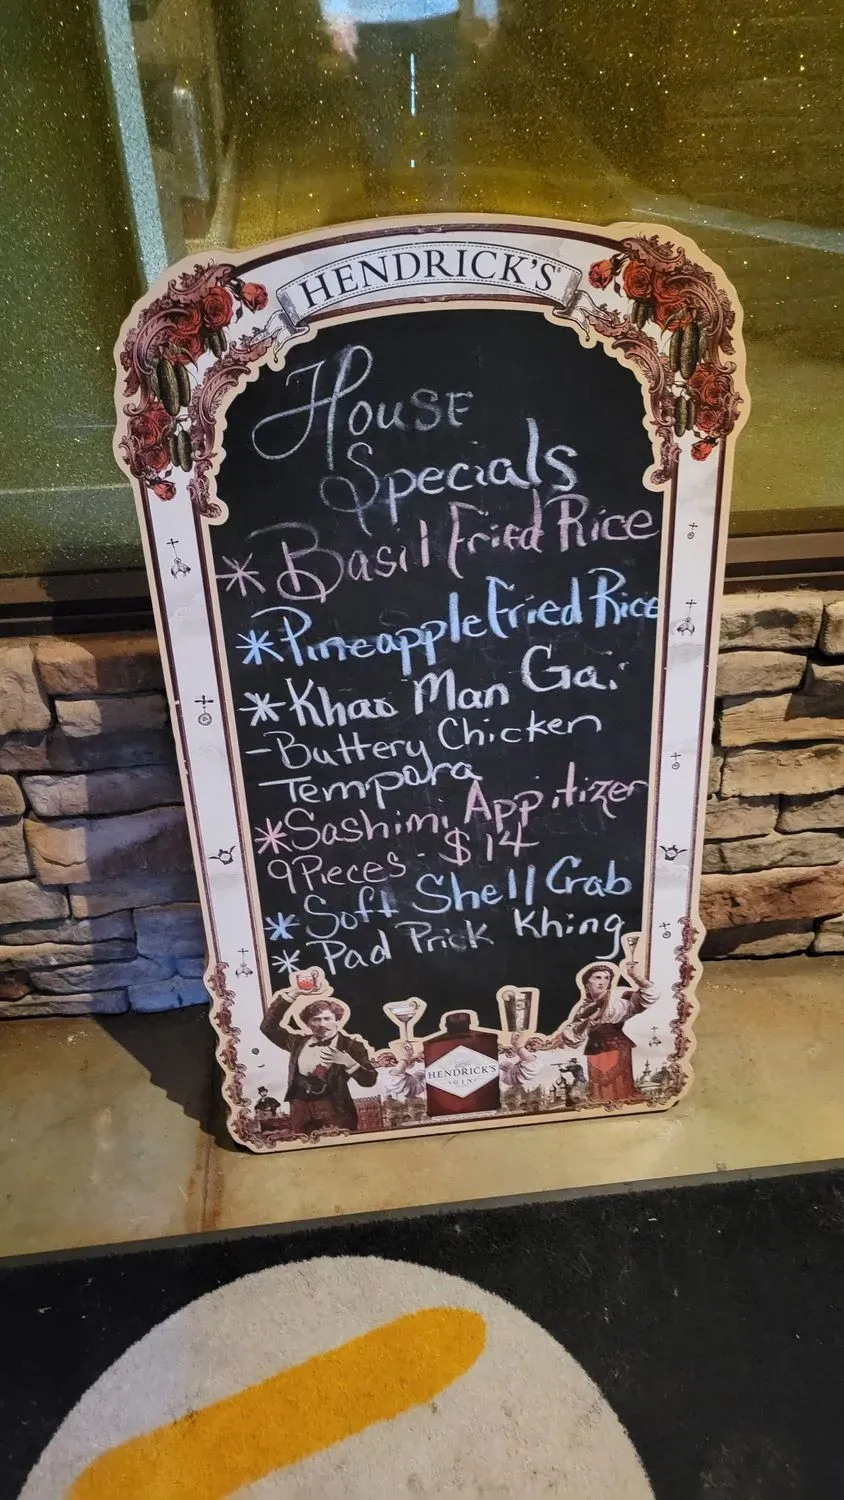 HENDRICK'S
House
Specials
* Basil Fried Rice
* Pineapple Fried Rice
* Khao Man Gai
- Buttery Chicken
Tempora
* Sashimi Appitizer
9 Pieces - $14
* Soft Shell Crab
* Pad Prick Khing
HENDRICK'S
GIN